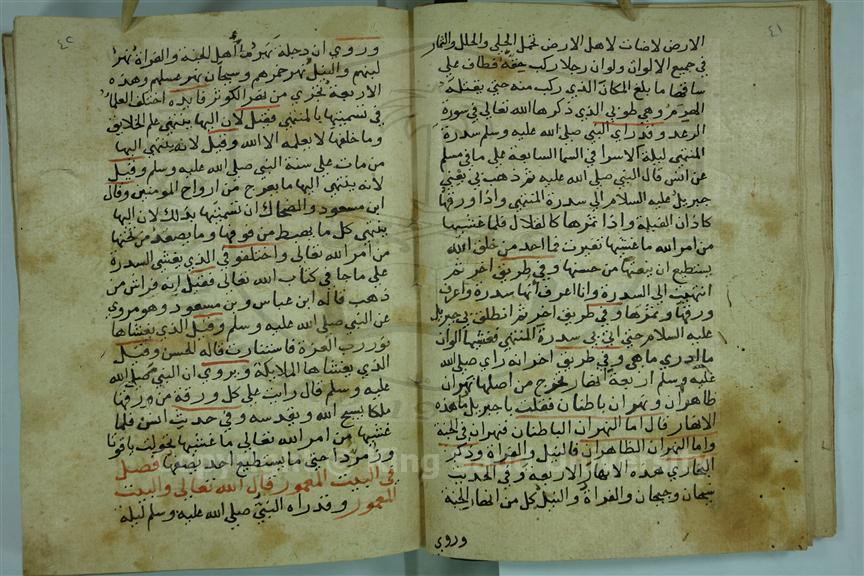 ٤١
الارض لاضات لاهل الارض تحمل الحلى والحلل والثمار
في جميع الالوان ولوان رجلا ركب حقه فطاف على
ساقها ما بلغ المكان الذي ركب منه حتى يقتله
الهرم وهي طوبى الذي ذكرها الله تعالى في سورة
الرعد وقد راي النبي صلى الله عليه وسلم سدرة
المنتهى ليلة الاسرا في السما السابعة على ما في مسلم
عن انس قال النبي صلى الله عليه ثم ذهب بي يعني
جبريل عليه السلام الى سدرة المنتهى واذا ورقها
كاذان الفيلة واذا ثمرها كالقلال فلما غشيها
من امر الله ما غشيها تغيرت فما احد من خلق الله
يستطيع ان ينعتها من حسنها وفي طريق اخر ثم
انتهيت الى السدرة وانا اعرف انها سدرة واعرف
ورقها وثمرها وفي طريق اخر ثم انطلق بي جبريل
عليه السلام حتى اتى بي سدرة المنتهى فغشيها الوان
ما ادري ماهى وفي طريق اخر انه راي صلى الله
عليه وسلم اربعة انهار تخرج من اصلها نهران
ظاهران ونهران باطنان فقلت يا جبريل ما هذه
الانهار قال اما النهران الباطنان فنهران في الجنة
واما النهران الظاهران فالنيل والفراة وذكر
البخاري هذه الانهار الاربعة وفي الحديث
سيحان وجيحان والفراة والنيل كل من انهار الجنة
وروي
٤٢
وروي ان دجلة نهر ما اهل الجنة والفراة نهر
لبنهم والنيل نهر خمرهم وسيحان نهر عسلهم وهذه
الاربعة تخرج من نهر الكوثر فايده اختلف العلما
في تسميتها بالمنتهى فقيل لان اليها ينتهى علم الخلايق
وما خلفها لا يعلمه الا الله وقيل لانه ينتهى اليها
من مات على سنة النبي صلى الله عليه وسلم وقيل
لانه ينتهى اليها ما يعرج من ارواح المومنين وقال
ابن مسعود والضحاك ان تسميتها بذلك لان اليها
ينتهى كل ما يهبط من فوقها وما يصعد من تحتها
من امر الله تعالى واختلفوا في الذي يغشى السدرة
على ما جا في كتاب الله تعالى فقيل انه فراش من
ذهب قاله ابن عباس وبن مسعود وهو مروي
عن النبي صلى الله عليه وسلم وقيل الذي يغشاها
نور رب العزة فاستنارت قاله الحسن وقيل
الذي يغشاها الملايكة ويروي ان النبي صلى الله
عليه وسلم قال رايت على كل ورقة من ورقها
ملكا يسبح الله ويقدسه وفي حديث انس فلما
غشيها من امر الله تعالى ما غشيها تحولت ياقوتا
وزمردا حتى ما يستطيع احد يصفها فصل
في البيت المعمور قال الله تعالى والبيت
المعمور وقد راه النبي صلى الله عليه وسلم ليلة